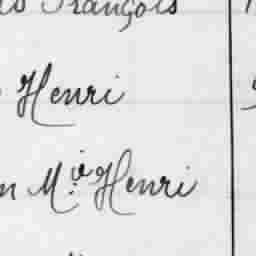 François
Henri
M.ie Henri